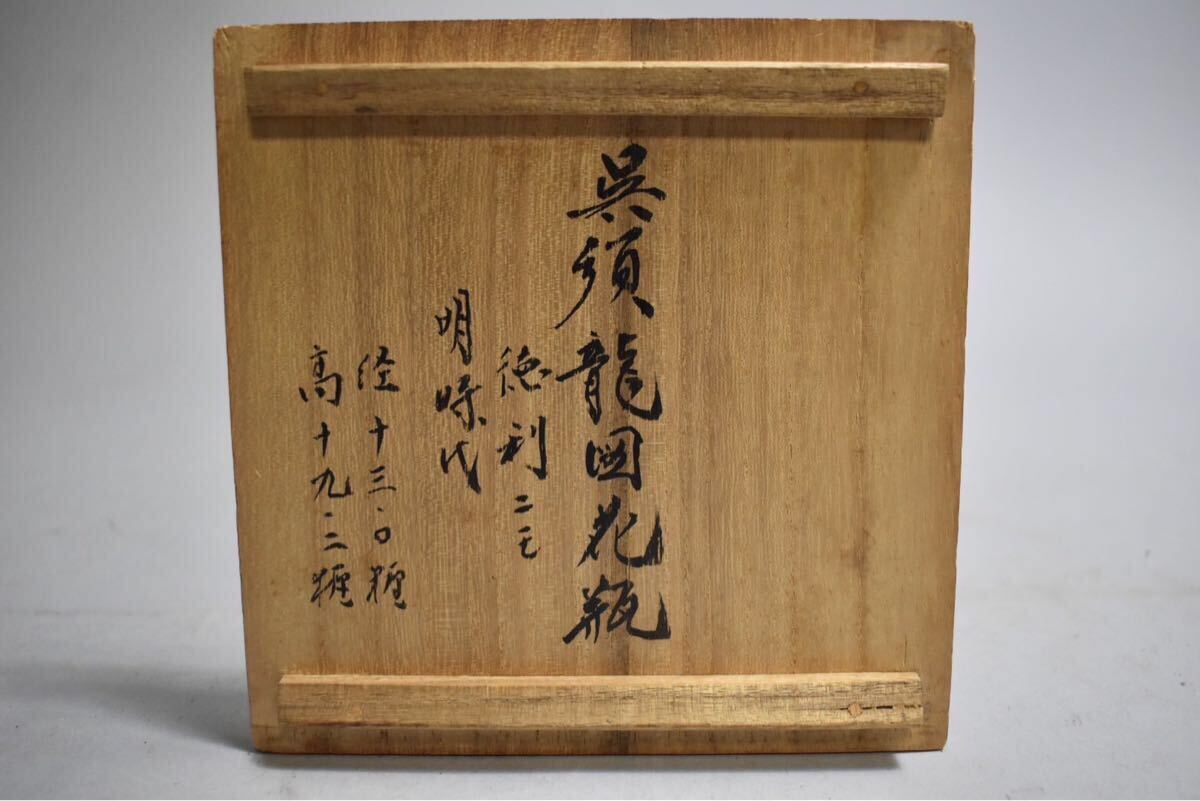 呉須龍図花瓶
徳利ニモ
明時代
径十三・〇糎
高十九・二糎